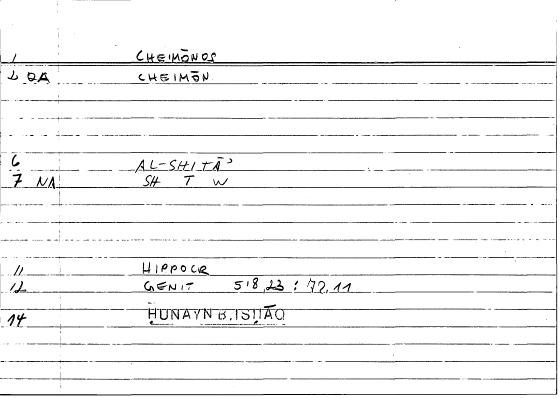 1 CHEIMŌNOS
2 QA CHEIMŌN
6 AL-SHITĀʾ
7 NA SH T W
11 HIPPOCR
12 GENIT 518,23 : 72,11
14 ḤUNAYN B.ISḤĀQ